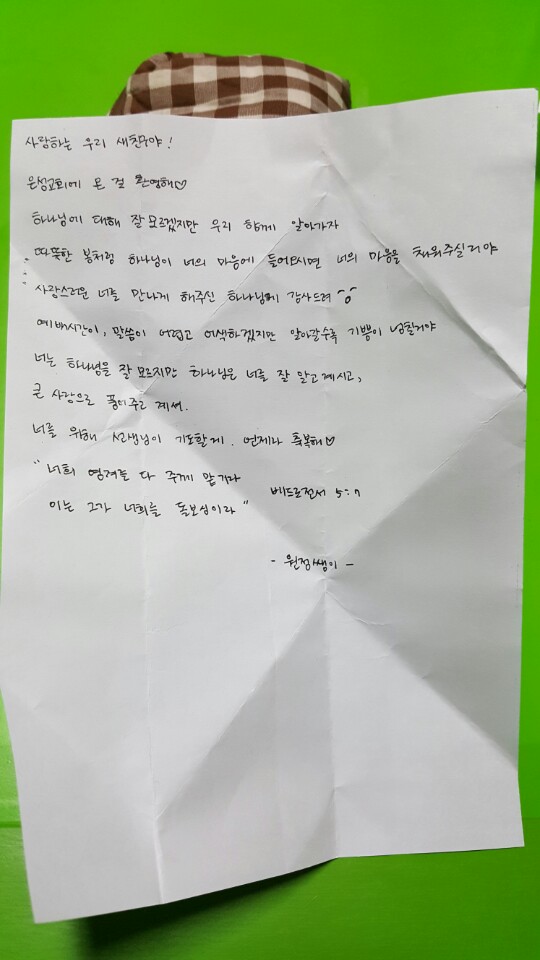 사랑하는 우리 새친구야!
은성교회에 온 걸 환영해♡
하나님에 대해 잘 모르겠지만 우리 함께 알아가자
따뜻한 봄처럼 하나님이 너의 마음에 들어오시면 너의 마음을 채워주실거야
사랑스러운 너를 만나게 해주신 하나님께 감사드려
예배시간이, 말씀이 어렵고 어색하겠지만 알아갈수록 기쁨이 넘칠거야
너는 하나님을 잘 모르지만 하나님은 너를 잘 알고 계시고,
큰 사랑으로 품어주고 계셔.
너를 위해 선생님이 기도할게. 언제나 축복해♡
"너희 염려를 다 주께 맡기라
이는 그가 너희를 돌보심이라" 베드로전서 5:7
- 원정쌤이 -